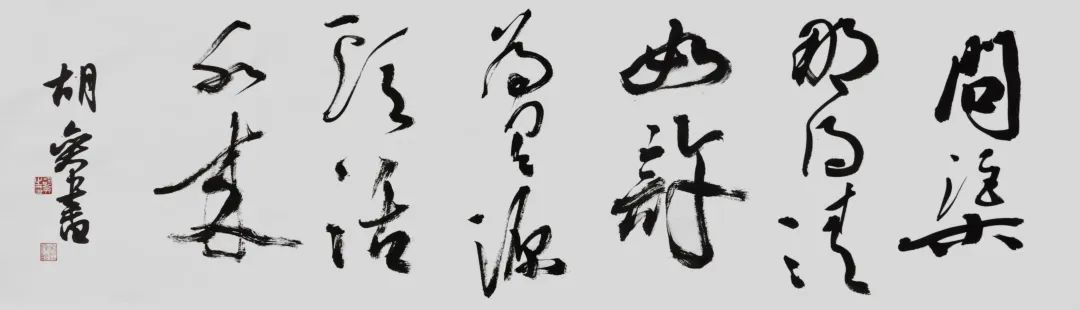 問渠
那得清
如許
為有源
頭活
水來
胡書